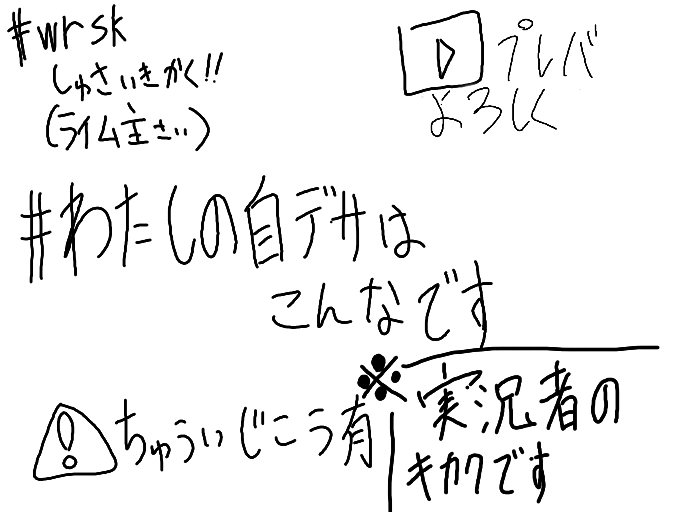 #wrsk
しゅさいきかく!!
(ライム主さい)
プレバ
よろしく
#わたしの自デサは
こんなです
ちゅういじこう有
※実況者の
キカクです